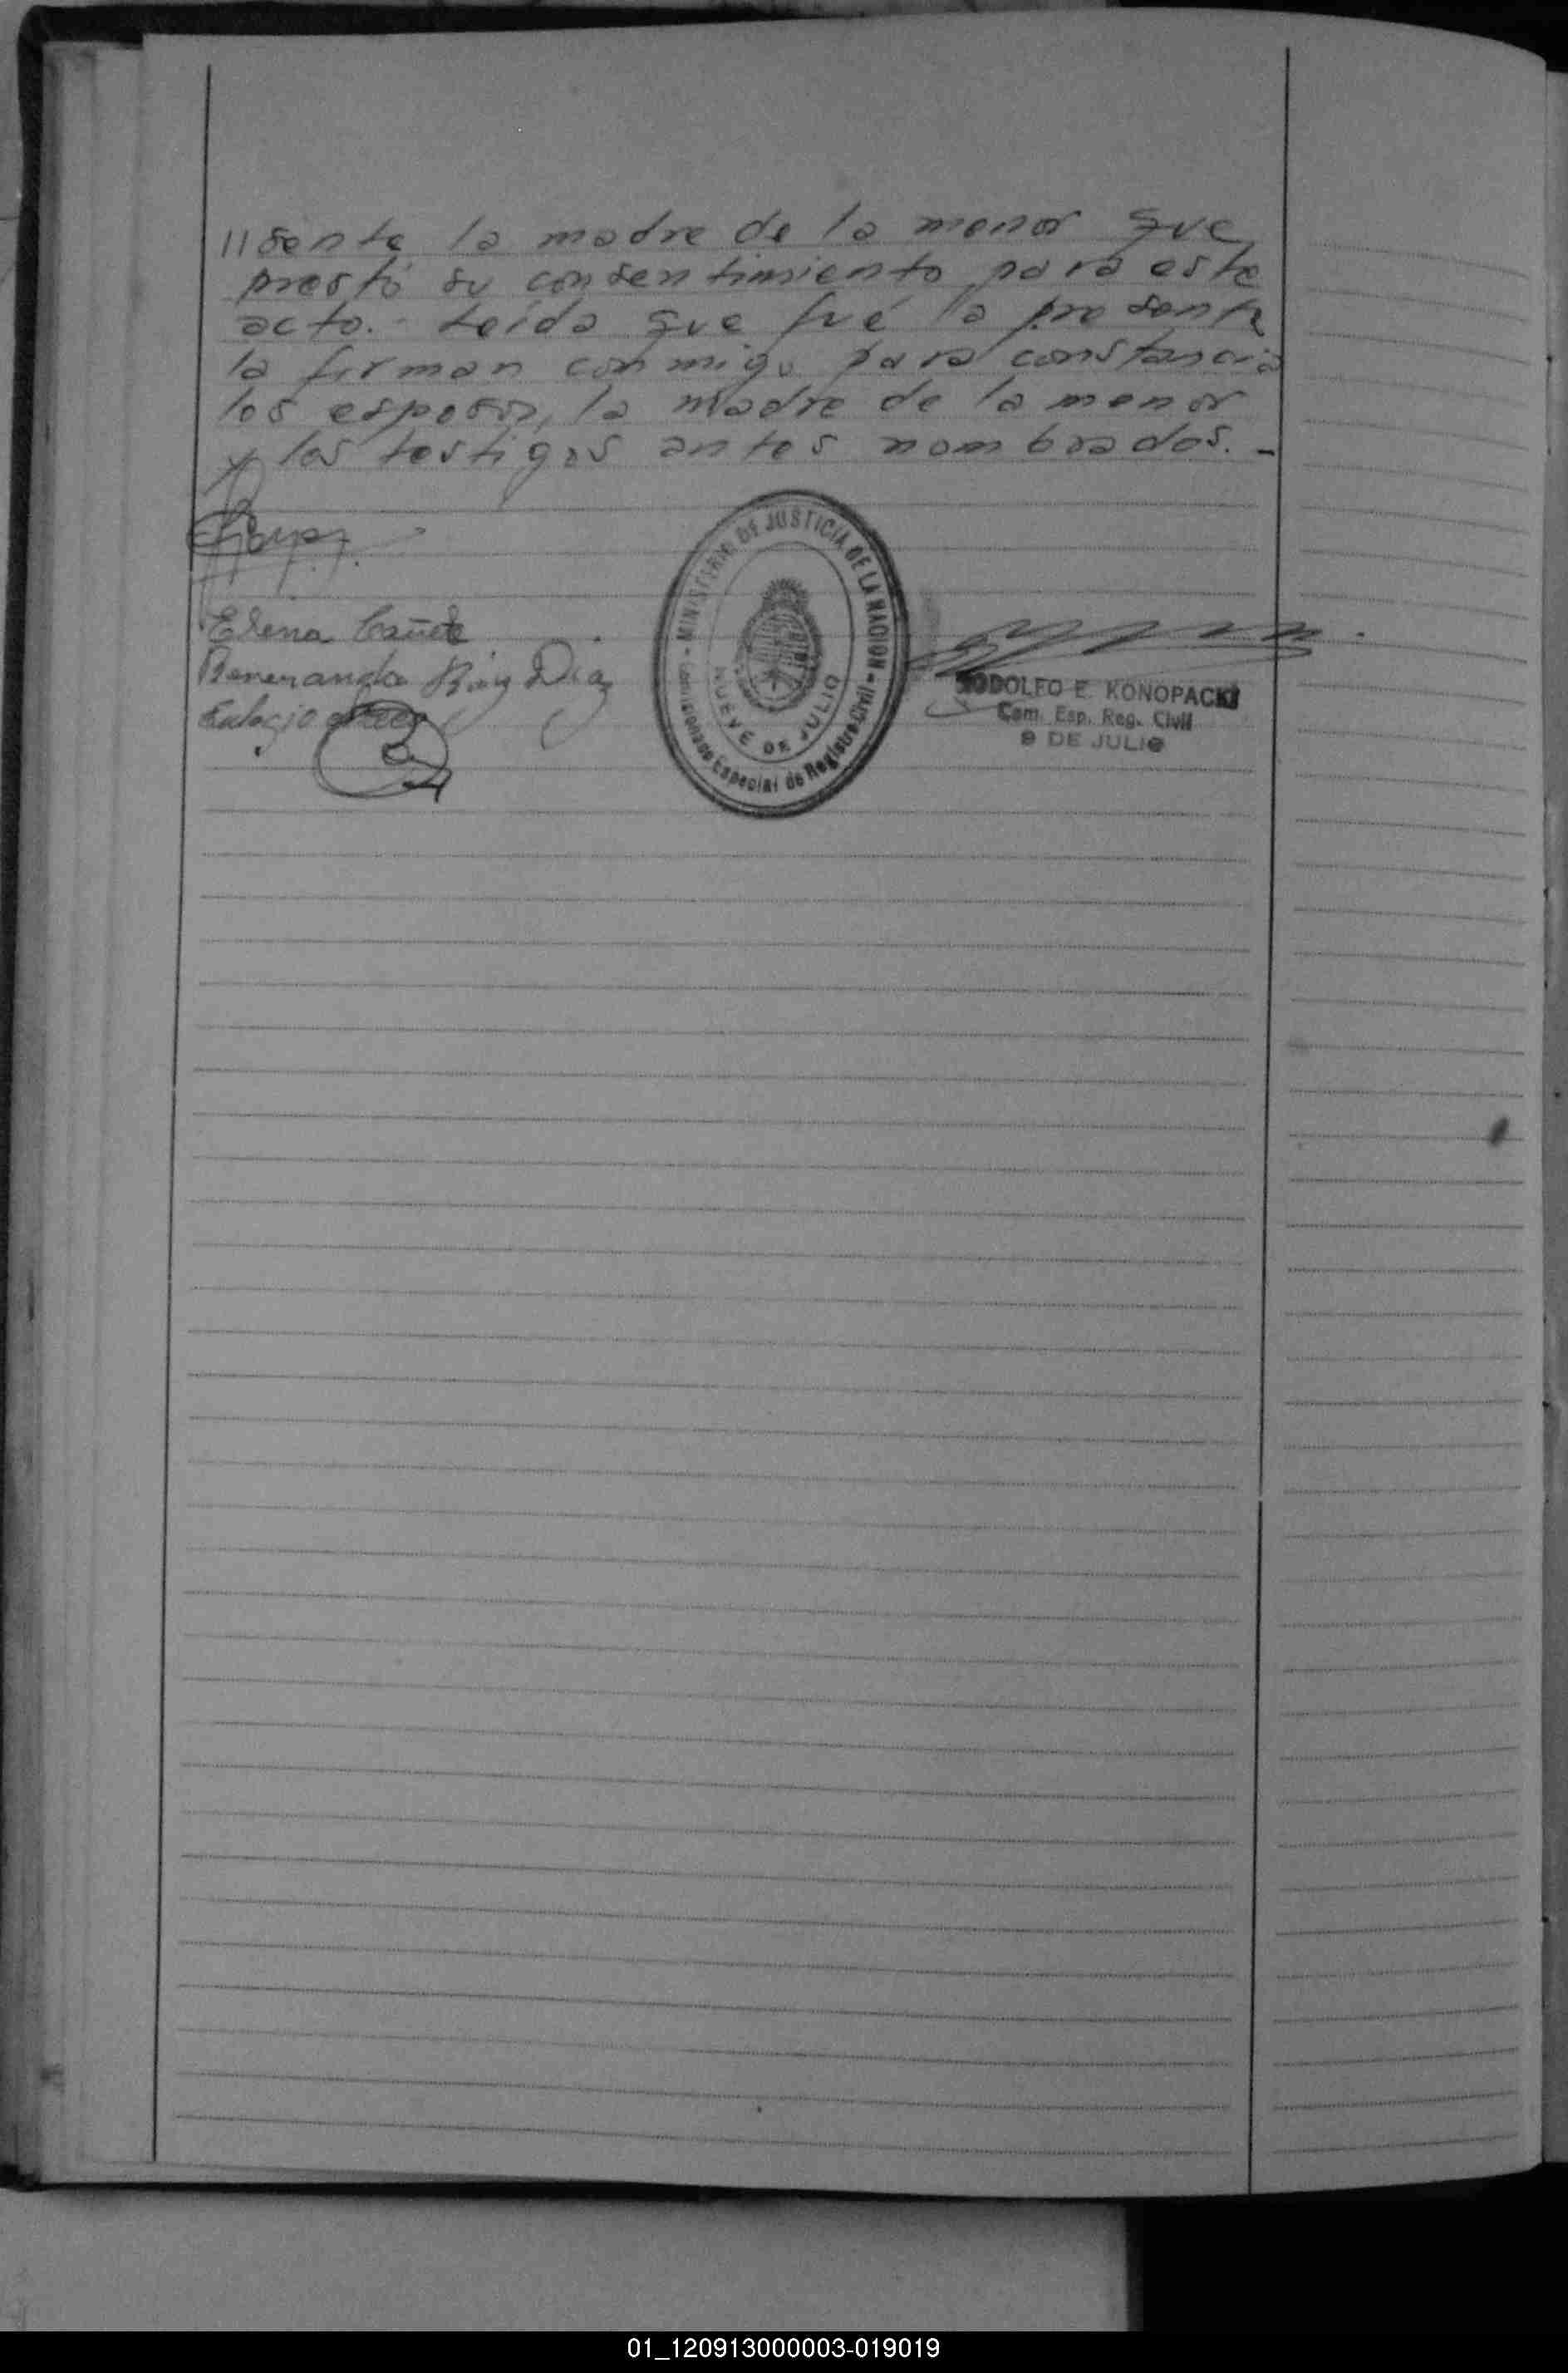 //sente la madre de la menor que
prestó su consentimiento para este
acto.- Leída que fué la presente
la firman conmigo para constancia
los esposos, la madre de la menor
y los testigos antes nombrados.-
MINISTERIO DE JUSTICIA DE LA NACION
Comisionado Especial de Registro Civil
NUEVE DE JULIO
Elena Cañete
Díaz
Eulogio
RODOLFO E. KONOPACKI
Com. Esp. Reg. Civil
9 DE JULIO
01_120913000003-019019